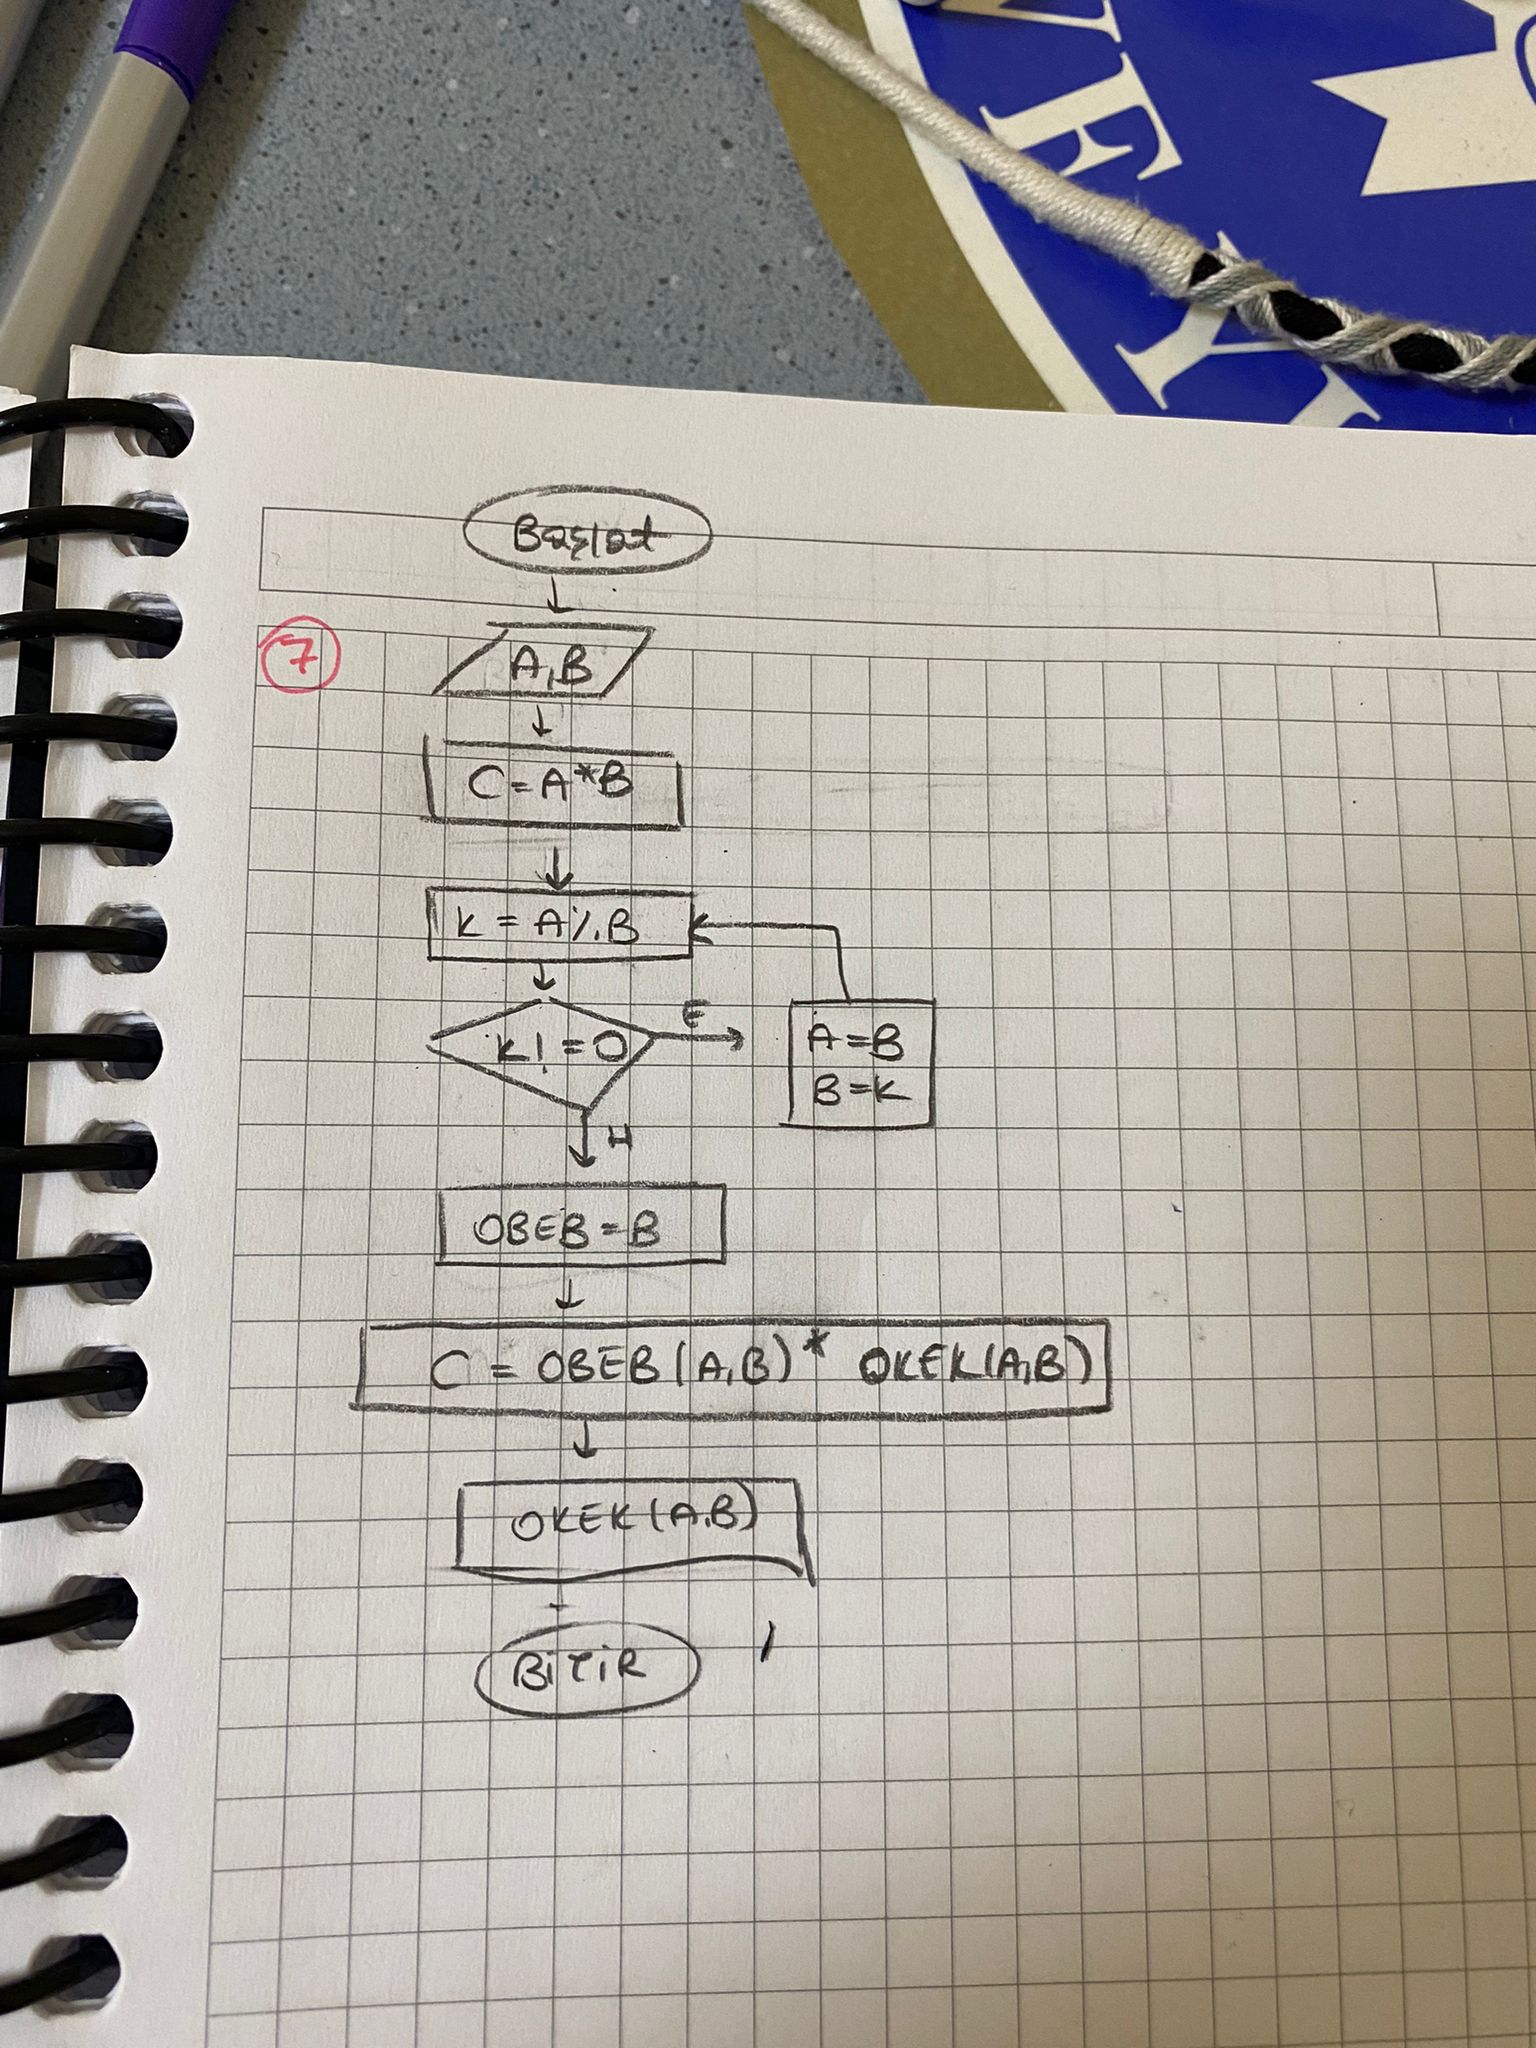 Başlat
7
A,B
C=A*B
K = A%B
K!=0
E
A=B
B=K
H
OBEB=B
C = OBEB(A,B)* OKEK(A,B)
OKEK(A,B)
BİTİR